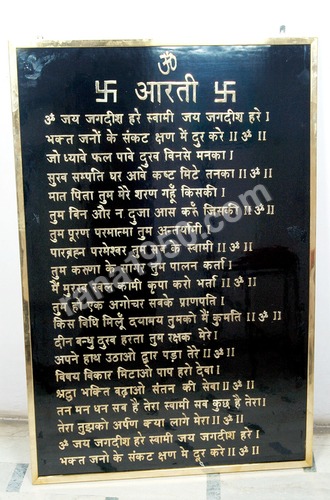 ॐ
卐 आरती 卐
ॐ जय जगदीश हरे स्वामी जय जगदीश हरे ।
भक्त जनों के संकट क्षण में दुर करे ।। ॐ ।।
जो ध्यावे फल पावे दुरव बिनसे मनका ।
सुरव सम्पति घर आवे कष्ट मिटे तनका ।। ॐ ।।
मात पिता तुम मेरे शरण गहूँ किसकी ।
तुम बिन और न दुजा आस करूँ जिसकी ।। ॐ ।।
तुम पूरण परमात्मा तुम अन्तर्यामी ।
पारब्रह्म परमेश्वर तुम सब के स्वामी ।। ॐ ।।
तुम करुणा के सागर तुम पालन कर्ता ।
मैं मुरख खल कामी कृपा करो भर्ता ।। ॐ ।।
तुम हो एक अगोचर सबके प्राणपति ।
किस विधि मिलूँ दयामय तुमको मैं कुमति ।। ॐ ।।
दीन बन्धु दुरव हरता तुम रक्षक मेरे ।
अपने हाथ उठाओ द्वार पड़ा तेरे ।। ॐ ।।
विषय विकार मिटाओ पाप हरो देवा ।
श्रद्धा भक्ति बढ़ाओ संतन की सेवा ।। ॐ ।।
तन मन धन सब है तेरा स्वामी सब कुछ है तेरा ।
तेरा तुझको अर्पण क्या लागे मेरा ।। ॐ ।।
ॐ जय जगदीश हरे स्वामी जय जगदीश हरे ।
भक्त जनो के संकट क्षण में दुर करे ।। ॐ ।।